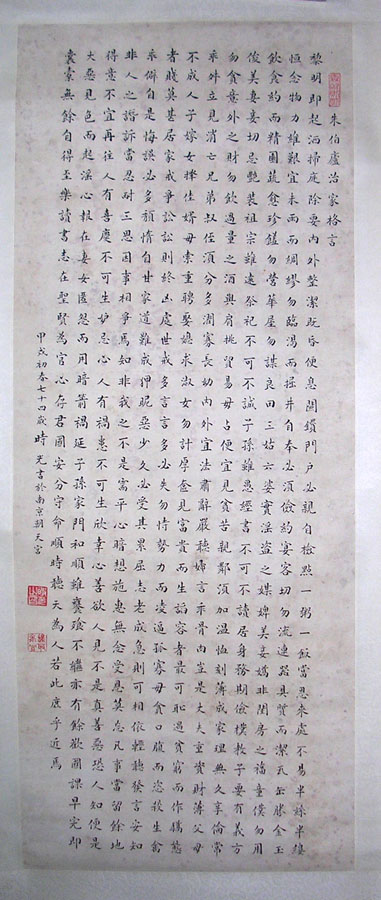 朱伯廬治家格言
黎明即起洒掃庭除要內外整潔既昏便息關鎖門戶必親自檢點一粥一飯當思來處不易半絲半縷
恒念物力維艱宜未雨而綢繆勿臨渴而掘井自奉必須儉約宴客切勿流連器具質而潔瓦缶勝金玉
飲食約而精園蔬愈珍饈勿營華屋勿謀良田三姑六婆實淫盜之媒婢美妾嬌非閨房之福童僕勿用
俊美妻妾切忌艷裝祖宗雖遠祭祀不可不誠子孫雖愚經書不可不讀居身務期儉樸教子要有義方
勿貪意外之財勿飲過量之酒與肩挑貿易毋占便宜見貧苦親鄰須加溫恤刻薄成家理無久享倫常
乖舛立見消亡兄弟叔侄須分多潤寡長幼內外宜法肅辭嚴聽婦言乖骨肉豈是丈夫重資財薄父母
不成人子嫁女擇佳婿毋索重聘娶媳求淑女勿計厚奩見富貴而生諂容者最可恥遇貧窮而作驕態
者賤莫甚居家戒爭訟訟則終凶處世戒多言言多必失勿恃勢力而凌逼孤寡毋貪口腹而恣殺生禽
乖僻自是悔誤必多頹惰自甘家道難成狎昵惡少久必受其累屈志老成急則可相依輕聽發言安知
非人之譖訴當忍耐三思因事相爭焉知非我之不是當平心暗想施惠無念受恩莫忘凡事當留餘地
得意不宜再往人有喜慶不可生妒忌心人有禍患不可生欣幸心善欲人見不是真善惡恐人知便是
大惡見色而起淫心報在妻女匿怨而用暗箭禍延子孫家門和順雖饔飧不繼亦有餘歡國課早完即
囊橐無餘自得至樂讀書志在聖賢為官心存君國安分守命順時聽天為人若此庶乎近焉
甲戌初春七十四歲時光書於南京朝天宮